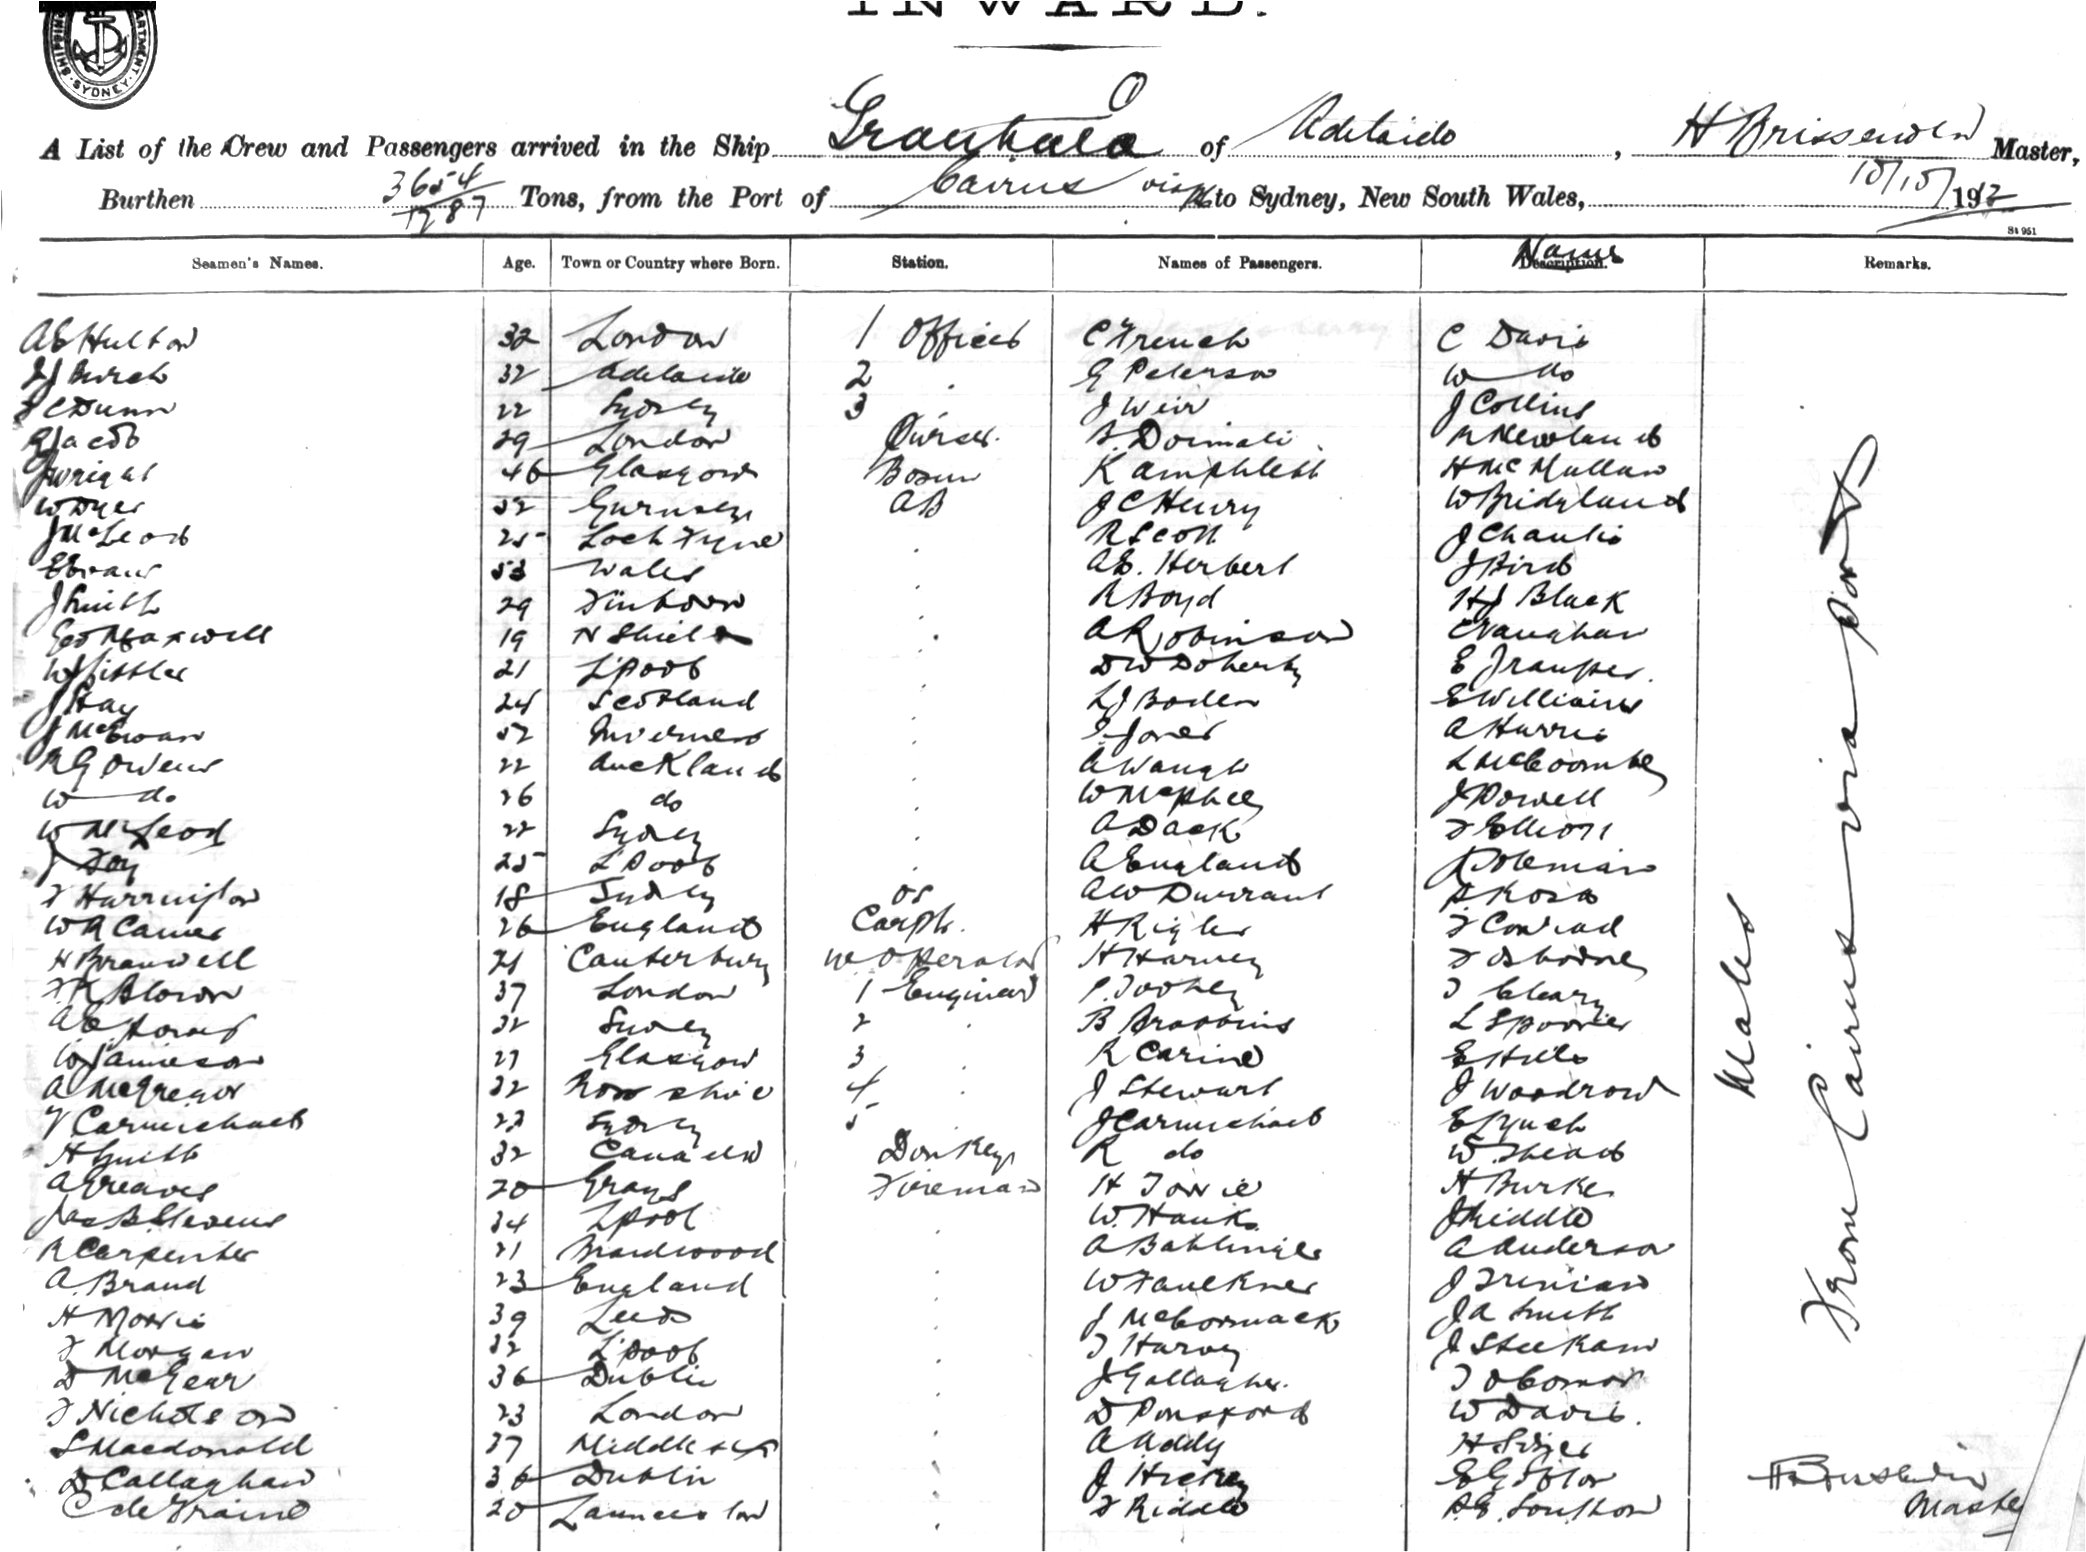 INWARD.
SHIPPING DEPARTMENT. SYDNEY
A List of the Crew and Passengers arrived in the Ship Grantala of Adelaide, H Brissenden Master,
Burthen 3654 / 1287 Tons, from the Port of Cairns via to Sydney, New South Wales, 191
St 951
Seamen's Names. Age. Town or Country where Born. Station. Names of Passengers. Description. Name Remarks.
A E Hulton 32 London 1 Officer C French C Davis
J J Burch 32 Adelaide 2 . G Peterson W do
F C Dunn 22 Sydney 3 J Weir J Collins
R Jacob 29 London Purser. K Newlands
J Wright 46 Glasgow Bosun K Amphlett H McMullan
W Dyer 32 Gurnsey AB J C Henry W Bridgland
J McLeod 25 Loch Fyne . R Scott J
E Evans 53 Wales . A E. Herbert J Bird
J Smith 29 . R Boyd H J Black
Geo Maxwell 19 N Shields . A Robinson C Vaughan
W 21 L'pool . D W Doherty E
J Hay 24 Scotland . L J Boden E Williams
J McEwan 52 Inverness . Jones A Harris
R G Owens 22 Auckland . A Waugh L McCoombey
W do 26 do . W McPhee J Powell
W McLeod 22 Sydney . A Dack F Elliott
J Foy 25 L'Pool . A England Coleman
F Harrington 18 Sydney OS A W Durrant Ross
W R Carner 26 England Carptr. H Rigler F Conrad
H Bramwell 21 Canterbury W Operator H Harvey F Osborne
F K Brown 37 London 1 Engineer P. Toohey T Cleary
A E 32 Sydney 2 . B Brabbins L Spooner
W Jamieson 27 Glasgow 3 . R Carine E Hills
A McGregor 32 Ross shire 4 . J Stewart J Woodrow
V Carmichael 23 Sydney 5 . J Carmichael E Lynch
H Smith 32 Canada Donkey R do W.
A Greaves 20 Grays Fireman H Torrie H Burke
Jas B Stevens 34 L'pool . W. Hanks J Riddle
R Carpenter 21 . A A Anderson
A. Brand 23 England . W Faulkner J
H Morris 39 Leeds . J McCormack J A Smith
F Morgan 32 L'pool . T Harvey J
D McGear 36 Dublin . J Gallagher. T O'Connor
F Nicholson 23 London . D Ponsford W Davis.
S Macdonald 37 Middlesex . A Addy H
D Callaghan 36 Dublin . J Hickey E G
C de Fraine 20 Launceston . F Riddle
Males
From Cairns via ports
H Brissenden
Master